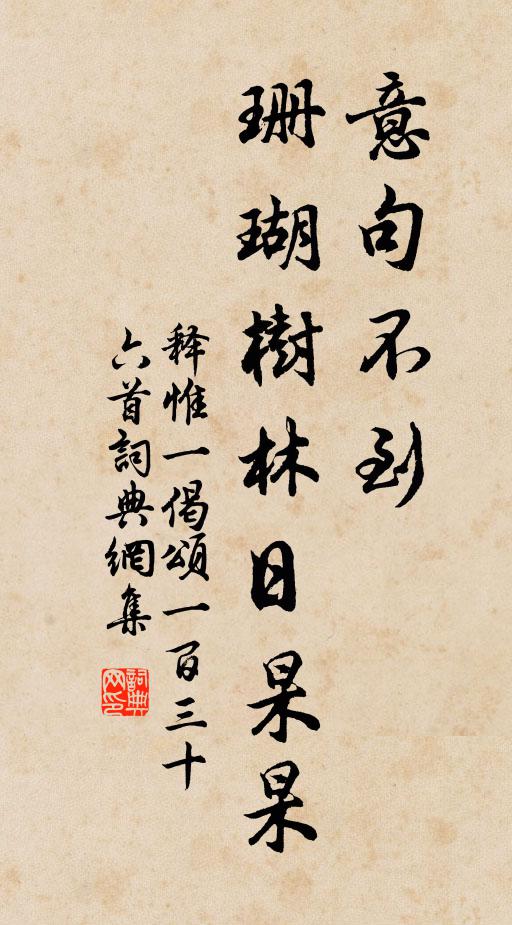 意句不到
珊瑚樹林日杲杲
释惟一偈頌一百三十
六首詞典網集
詞典
网印